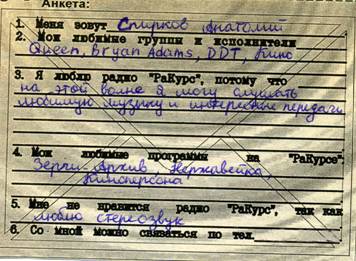 Анкета:
1. Меня зовут Спирков Анатолий
2. Мои любимые группы и исполнители
Queen, Bryan Adams, DDT, Кино
3. Я люблю радио "РаКурс", потому что
на этой волне я могу слушать
любимую музыку и интересные передачи
4. Мои любимые программы на "РаКурсе":
Архив, Нержавейка,
Киноперсона
5. Мне не нравится радио "РаКурс", так как
люблю стереозвук
6. Со мной можно связаться по тел.